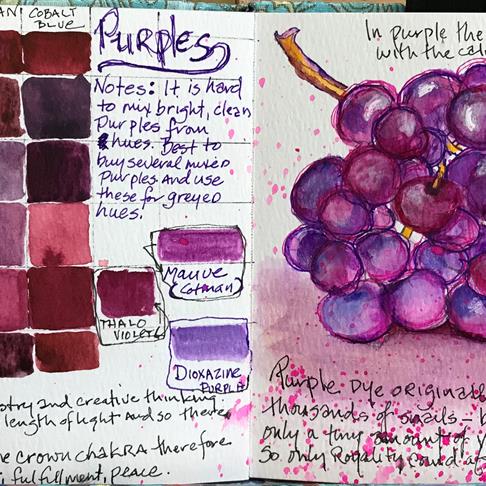 AN
COBALT
BLUE
Purples
Notes: It is hard
to mix bright, clean
Purples from
hues. Best to
buy several mixed
Purples and use
these for greyed
hues.
Mauve
(Cotman)
THALO
VIOLET
DIOXAZINE
PURPLE
etry and creative thinking.
length of light and so there
e crown chakra therefore
, fulfillment, peace.
In purple the
with the cal
Purple Dye original
thousands of snails – b
only a tiny amount of y
so only Royality could af